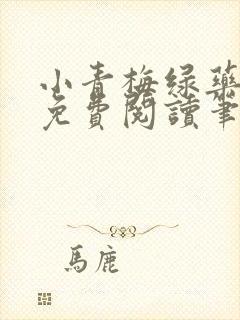 小青梅绿药
免費閱讀筆
馬鹿